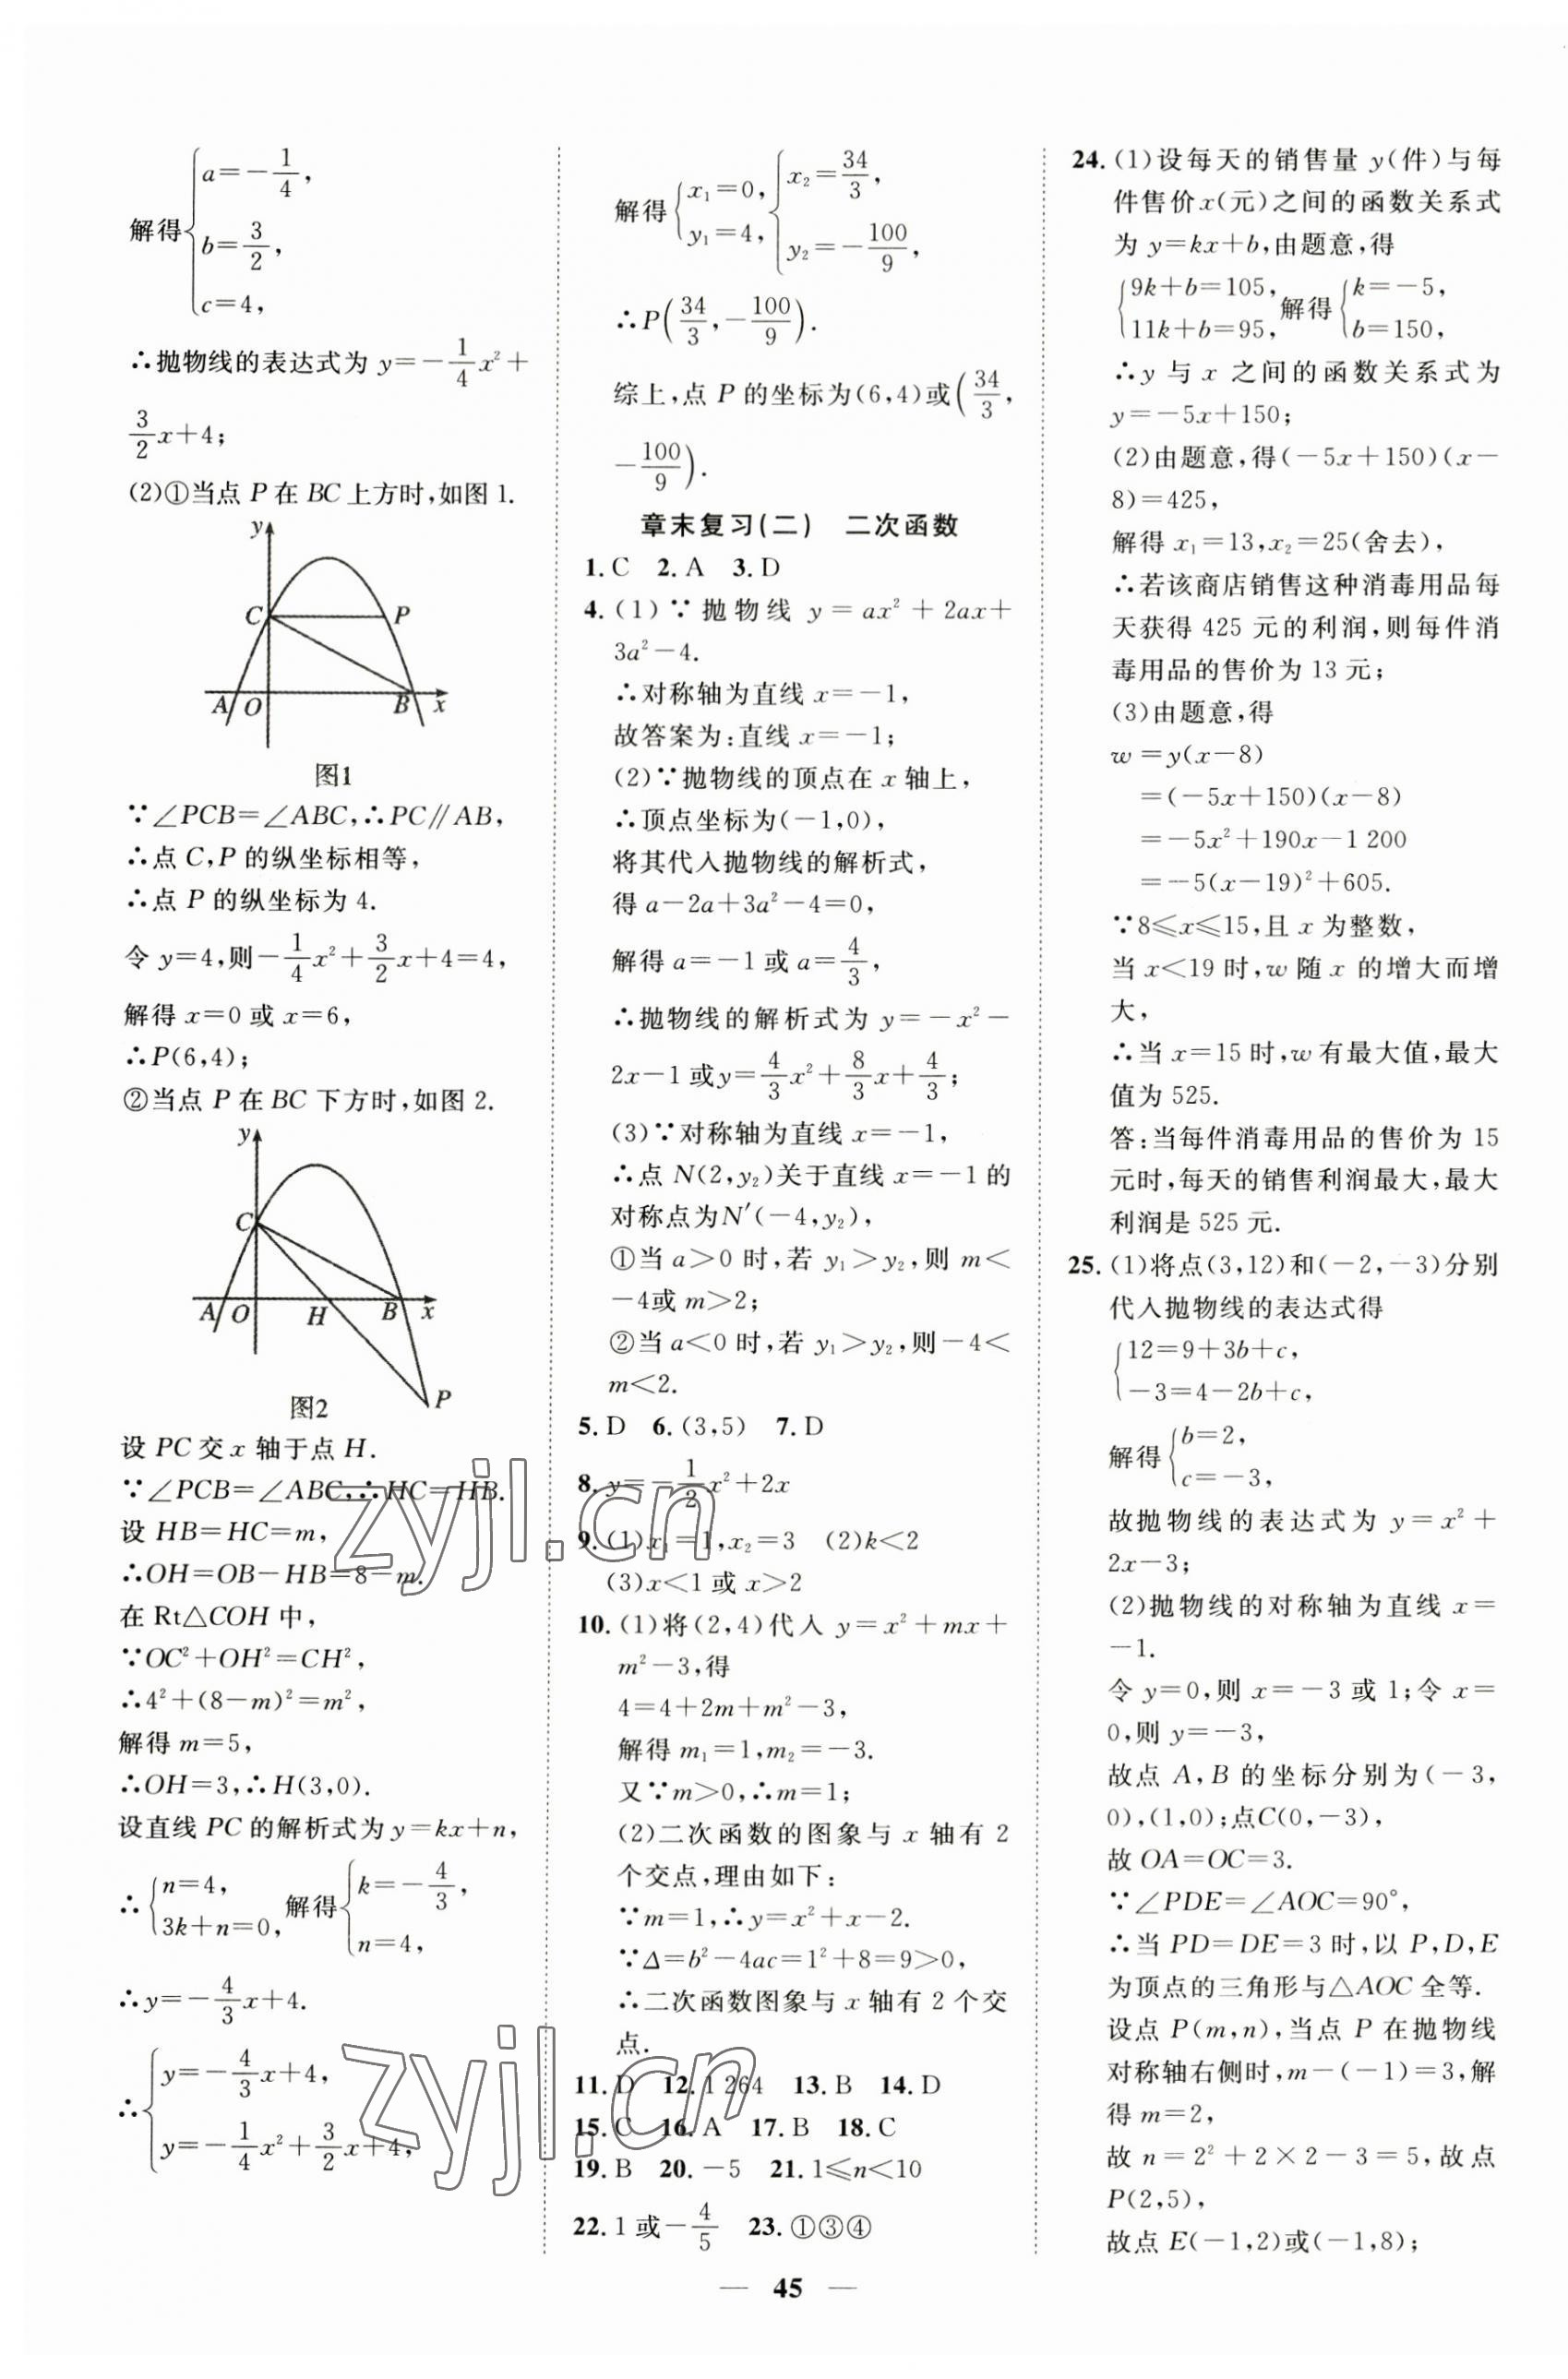 解得{a=-1/4,
b=3/2,
c=4,
∴抛物线的表达式为 y=-1/4x²+
3/2x+4;
(2)①当点 P 在 BC 上方时,如图 1.
y
C
P
A
O
B
x
图1
∵∠PCB=∠ABC,∴PC∥AB,
∴点 C,P 的纵坐标相等,
∴点 P 的纵坐标为 4.
令 y=4,则-1/4x²+3/2x+4=4,
解得 x=0 或 x=6,
∴P(6,4);
②当点 P 在 BC 下方时,如图 2.
y
C
A
O
H
B
x
P
图2
设 PC 交 x 轴于点 H.
∵∠PCB=∠ABC,∴HC=HB.
设 HB=HC=m,
∴OH=OB-HB=8-m.
在 Rt△COH 中,
∵OC²+OH²=CH²,
∴4²+(8-m)²=m²,
解得 m=5,
∴OH=3,∴H(3,0).
设直线 PC 的解析式为 y=kx+n,
∴{n=4, 3k+n=0, 解得{k=-4/3, n=4,
∴y=-4/3x+4.
∴{y=-4/3x+4,
y=-1/4x²+3/2x+4,
解得{x₁=0, y₁=4, {x₂=34/3, y₂=-100/9,
∴P(34/3,-100/9).
综上,点 P 的坐标为(6,4)或(34/3,
-100/9).
章末复习(二) 二次函数
1.C 2.A 3.D
4.(1)∵抛物线 y=ax²+2ax+
3a²-4.
∴对称轴为直线 x=-1,
故答案为:直线 x=-1;
(2)∵抛物线的顶点在 x 轴上,
∴顶点坐标为(-1,0),
将其代入抛物线的解析式,
得 a-2a+3a²-4=0,
解得 a=-1 或 a=4/3,
∴抛物线的解析式为 y=-x²-
2x-1 或y=4/3x²+8/3x+4/3;
(3)∵对称轴为直线 x=-1,
∴点 N(2,y₂)关于直线 x=-1 的
对称点为N′(-4,y₂),
①当 a>0 时,若 y₁>y₂,则 m<
-4或 m>2;
②当 a<0 时,若 y₁>y₂,则-4<
m<2.
5.D 6.(3,5) 7.D
8.y=-1/2x²+2x
9.(1)x₁=1,x₂=3 (2)k<2
(3)x<1 或 x>2
10.(1)将(2,4)代入 y=x²+mx+
m²-3,得
4=4+2m+m²-3,
解得 m₁=1,m₂=-3.
又∵m>0,∴m=1;
(2)二次函数的图象与 x 轴有 2
个交点,理由如下:
∵m=1,∴y=x²+x-2.
∵Δ=b²-4ac=1²+8=9>0,
∴二次函数图象与 x 轴有 2 个交
点.
11.D 12.1 264 13.B 14.D
15.C 16.A 17.B 18.C
19.B 20.-5 21.1≤n<10
22.1 或-4/5 23.①③④
24.(1)设每天的销售量 y(件)与每
件售价 x(元)之间的函数关系式
为 y=kx+b,由题意,得
{9k+b=105, 11k+b=95, 解得{k=-5, b=150,
∴y 与 x 之间的函数关系式为
y=-5x+150;
(2)由题意,得(-5x+150)(x-
8)=425,
解得 x₁=13,x₂=25(舍去),
∴若该商店销售这种消毒用品每
天获得 425 元的利润,则每件消
毒用品的售价为 13 元;
(3)由题意,得
w=y(x-8)
=(-5x+150)(x-8)
=-5x²+190x-1 200
=-5(x-19)²+605.
∵8≤x≤15,且 x 为整数,
当 x<19 时,w 随 x 的增大而增
大,
∴当 x=15 时,w 有最大值,最大
值为 525.
答:当每件消毒用品的售价为 15
元时,每天的销售利润最大,最大
利润是 525 元.
25.(1)将点(3,12)和(-2,-3)分别
代入抛物线的表达式得
{12=9+3b+c,
-3=4-2b+c,
解得{b=2, c=-3,
故抛物线的表达式为 y=x²+
2x-3;
(2)抛物线的对称轴为直线 x=
-1.
令 y=0,则 x=-3 或 1;令 x=
0,则 y=-3,
故点 A,B 的坐标分别为(-3,
0),(1,0);点C(0,-3),
故 OA=OC=3.
∵∠PDE=∠AOC=90°,
∴当 PD=DE=3 时,以 P,D,E
为顶点的三角形与△AOC 全等.
设点 P(m,n),当点 P 在抛物线
对称轴右侧时,m-(-1)=3,解
得 m=2,
故 n=2²+2×2-3=5,故点
P(2,5),
故点 E(-1,2)或(-1,8);
— 45 —
zyjl.cn
zyjl.cn